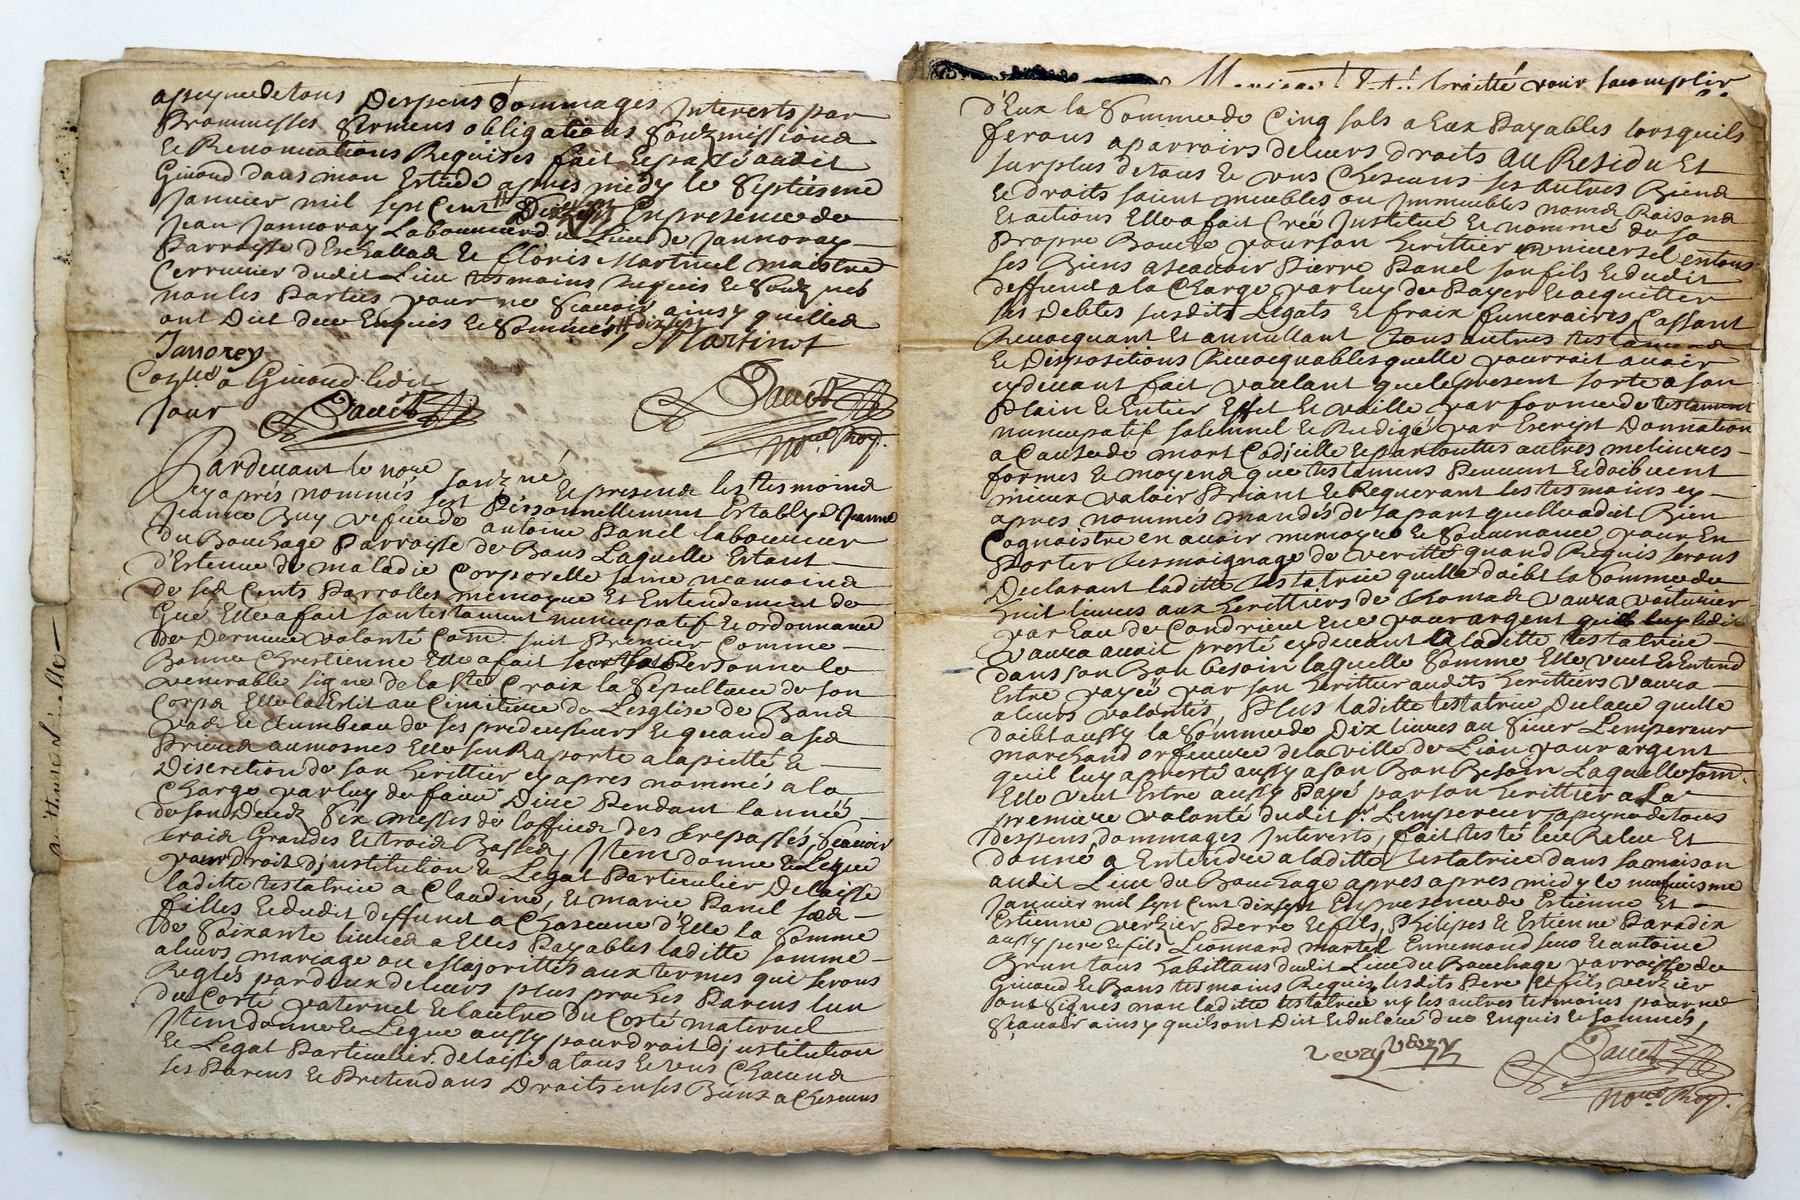 a peyne de tous Despens Dommages Interests par
Prommesses sermens obligations soubzmissions
Et Renonciations Requises fait Et passé audit
Givord dans mon Estude apres midy le septiesme
Janvier mil sept Cent Dix En presence de
Jean Jannoray Laboureur du Lieu de Jannoray
Parroisse d'Eschallas Et Cloris Martinel maistre
dudit Lieu tesmoins Requis Et soubz nes
non les Parties pour ne sçavoir ainsy quelles
ont Dict deue Enquis Et Sommés dix sept Martinet
Janorey
Collé a Givord ledit
jour Dauit Dauit
not. Roy.
Pardevant le nore soubzné
cy aprés nommés Et presens les tesmoins
sest Personnellement Establye Jeanne
Buy vefue de antoine Panel laboureur
du Bouchage Parroisse de Bans Laquelle Estant
d'Estenue de maladie Corporelle saine neamoins
de ses Cents Parrolles memoyre Et Entendement de
Gué Elle a fait son testament nuncupatif Et ordonnance
de Derniere volonté Com suit Premier Comme
Bonne Chrestienne Elle a fait sur sa Personne le
venerable signe de la Ste Croix la Sepulture de son
Corps Elle la Eslit au Cimitiere de Lesglise de Bans
Et tumbeau de ses predecesseurs Et quand a ses
Prieres aumosnes Elle sen Raporte a la pietté Et
Discretion de son heritier cy apres nommés a la
Charge par luy de faire Dire Pendant lannée
de son Decedz Six messes de Loffice des trepassés, scauoir
trois Grandes Et trois Basses, Item donne Et Legue
pour droit d'institution Et Legat Particulier Delaisse
laditte testatrice a Claudine, Et marie Panel ses
filles Et dudit deffunct a Chascune d'Elle la Somme
de soixante livres a Elles Payables laditte somme
a leurs mariage ou Majorittés aux termes qui serons
Reglés par deux de leurs plus proches Parens lun
du Costé paternel Et lautre du Costé maternel
Item donne Et Legue aussy pour droit d'institution
Et Legat Particulier delaisse a tous Et uns Chacuns
ses Parens Et Pretendans Droits en ses Biens a Chescuns
pour sacomplir
d'Eux la Somme de Cinq sols a Eux Payables lors quils
feront aparroirs de leurs droits Au Residu Et
surplus de tous Et uns Chescuns ses autres Biens
Et droits soient meubles ou Immeubles noms Raisons
Et actions Elle a fait Creé Institué Et nommé de sa
Propre Bouche pour son heritier universel en tous
ses Biens a scauoir Pierre Panel son fils Et dudit
deffunct a la Charge par luy de Payer Et acquitter
ses Debtes susdits Legats Et fraix funeraires Cassant
Revocquant Et annullant tous autres testamens
Et Dispositions Revocquables quelle pourroit avoir
cy devant fait voulant que le present sorte a son
Plain Et Entier Effet Et vaille par forme de testament
nuncupatif solemnel Et Redigé par Escript Donnation
a Cause de mort Codicille Et par toutes autres meilieures
formes Et moyens que testamens Peuuent Et doibuent
mieux valoir Priant Et Requerant les tesmoins cy
apres nommés mandés de sa part quelle a dit Bien
Cognoistre en avoir memoyre Et souuenance pour En
Porter tesmoignage de veritté quand Requis serons
Declarant laditte testatrice quelle doibt la Somme de
huit livres aux heritiers de thomas vaura voiturier
par Eau de Condrieu pour argent que ledit
vaura avoit presté cy devant a laditte testatrice
dans son Bon besoin laquelle Somme Elle veut Et Entend
Estre payeé par son heritier audits heritiers vaura
a leurs volontés, Plus laditte testatrice Declare quelle
doibt aussy la Somme de Dix livres au Sieur Lempereur
marchand orfeuure de la ville de Lion pour argent
quil luy a presté aussy a son Bon Besoin Laquelle som.
Elle veut Estre aussy Payé par son heritier a La
premiere volonté dudit sr Lempereur a peyne de tous
despens, dommages Interests, fait testé leu Releu Et
donné a Entendre a laditte testatrice dans sa maison
audit Lieu du Bouchage apres apres midy le neufuiesme
Janvier mil sept Cent dixsept En presence de Estienne Et
Estienne verzier Perre Et fils, Philipes Et Estienne Paradix
aussy pere Et fils Lionnard martel Ennemond Et antoine
Brun tous habittans dudit Lieu du Bouchage parroisse de
Givord Et Bans tesmoins Requis lesdits Pere Et fils verzier
ont Signés non laditte testatrice ny les autres tesmoins pour ne
sçavoir ainsy quils ont Dict Et declaré deue Enquis Et sommés,
Dauit
not. Roy.